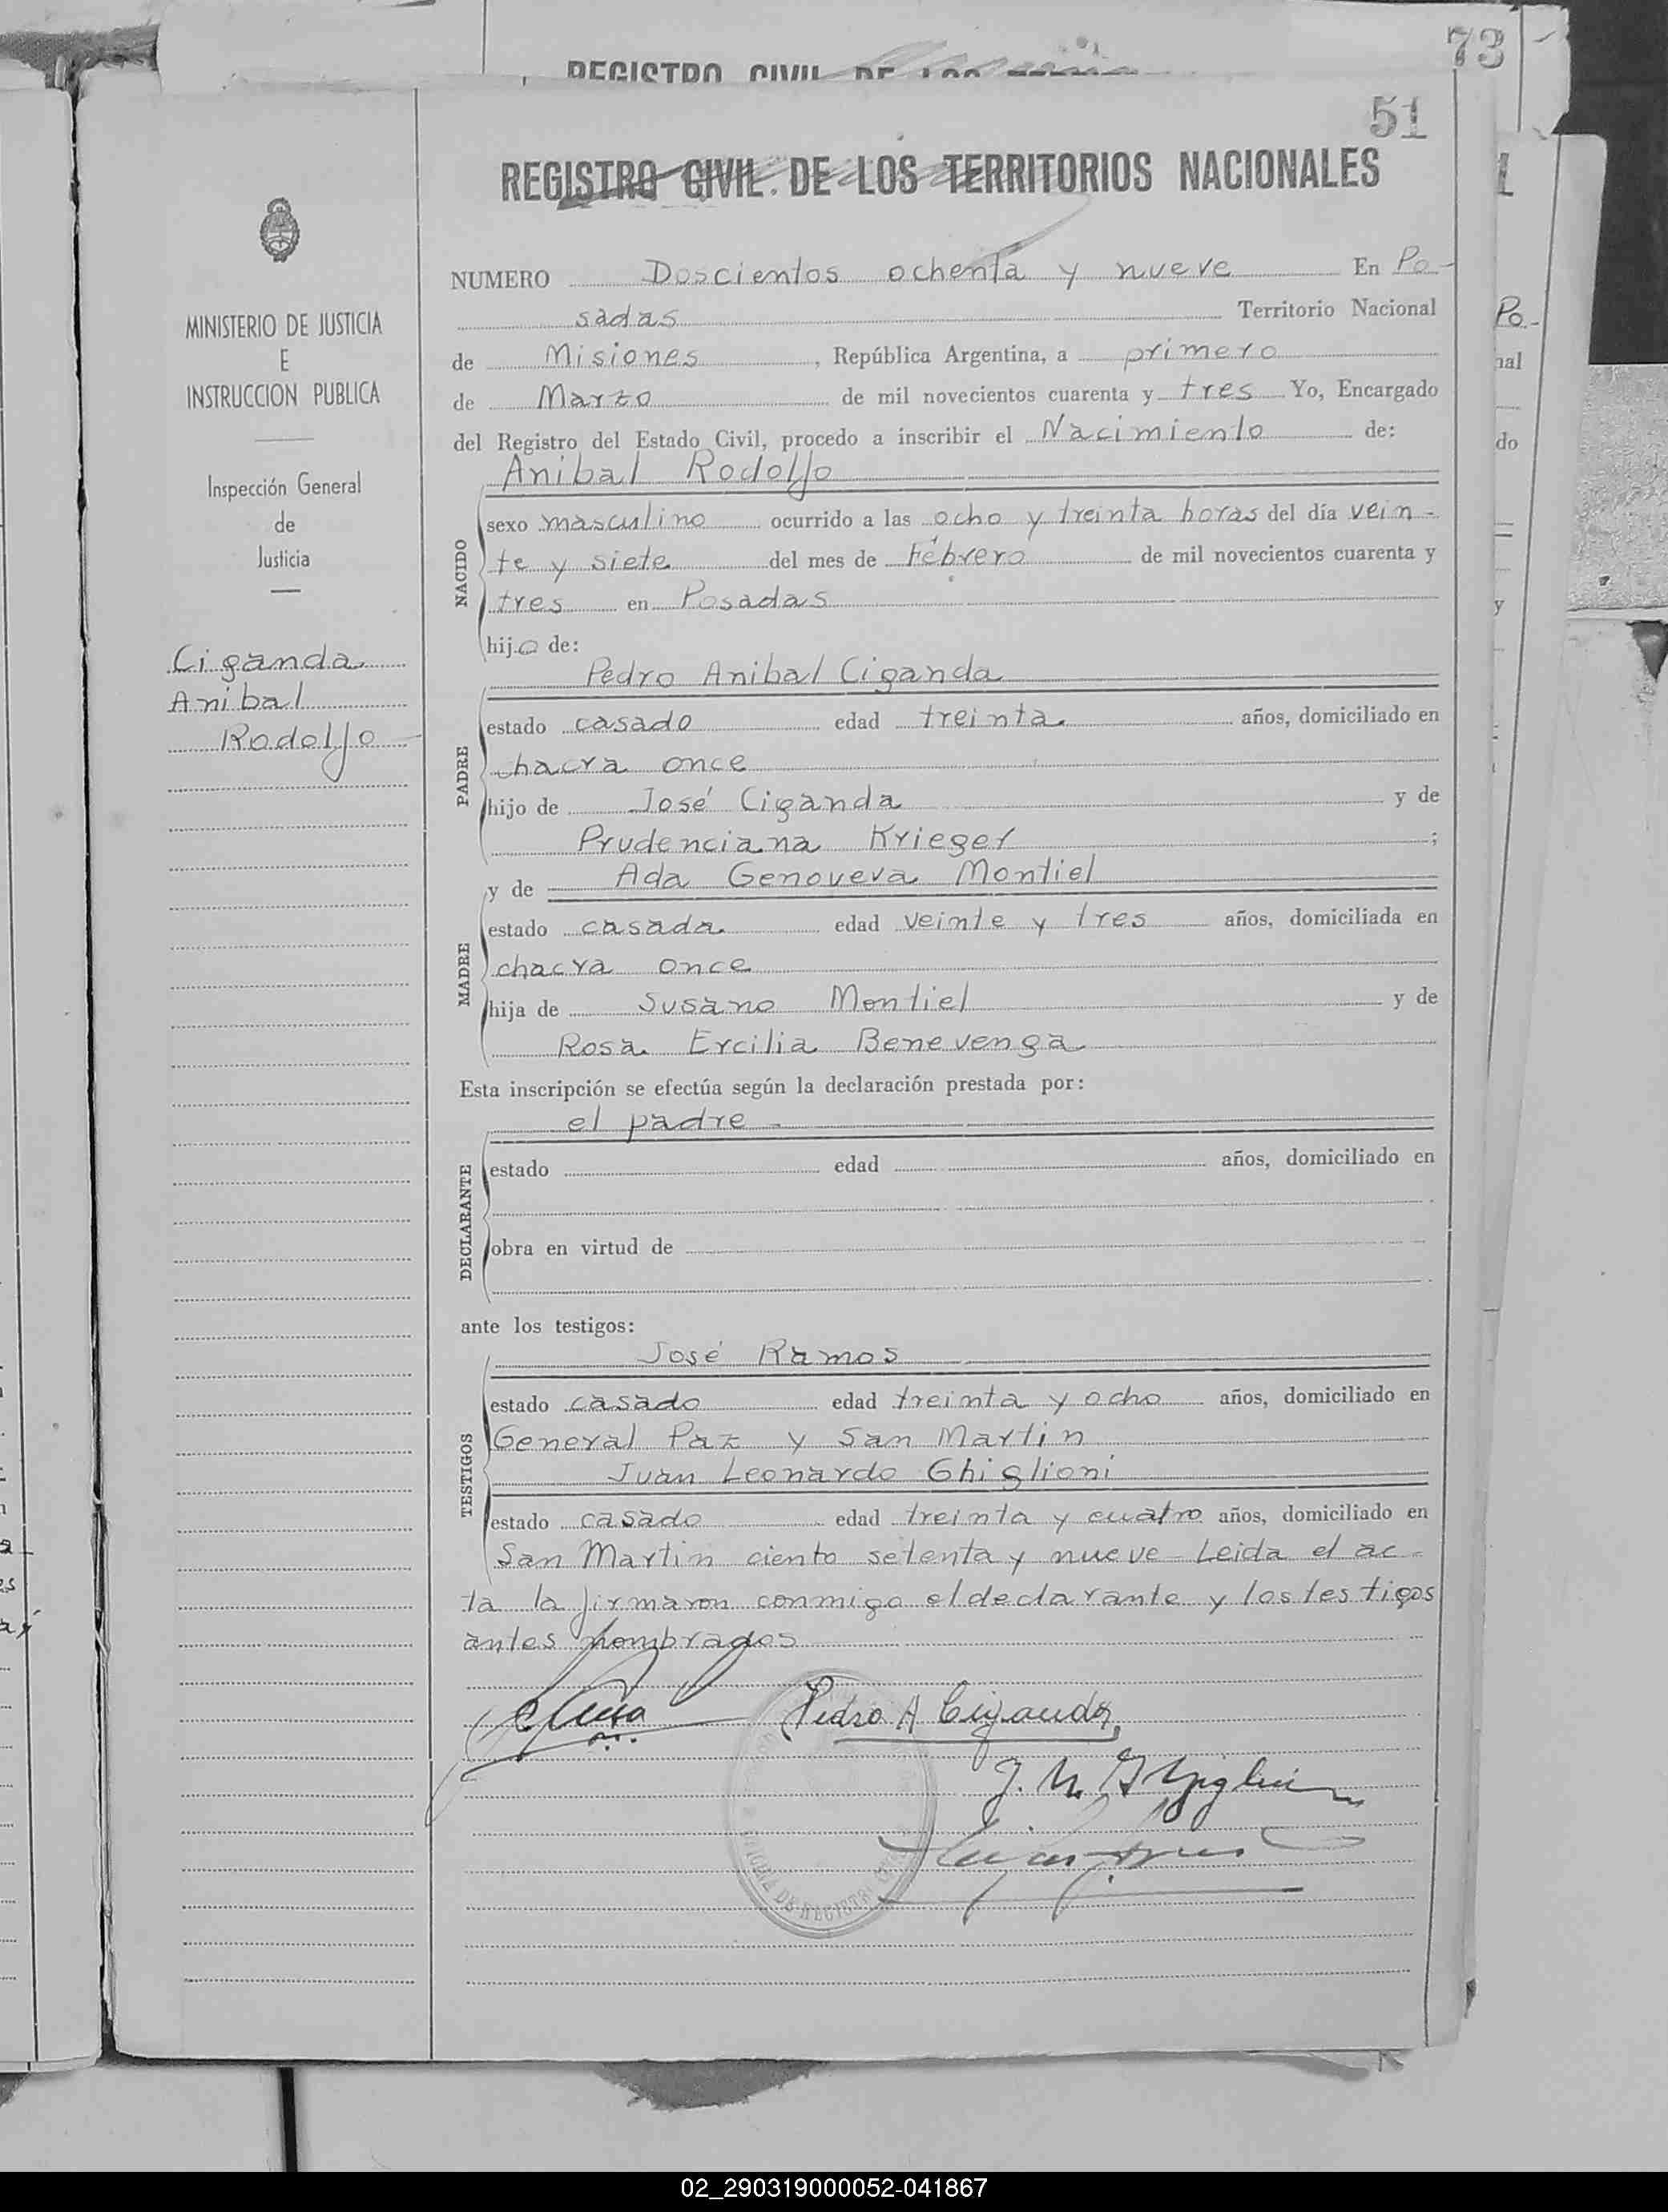 73
REGISTRO CIVIL DE LOS
51
REGISTRO CIVIL DE LOS TERRITORIOS NACIONALES
MINISTERIO DE JUSTICIA
E
INSTRUCCION PUBLICA
Inspección General
de
Justicia
Ciganda
Anibal
Rodolfo
NUMERO Doscientos ochenta y nueve En Po-
sadas Territorio Nacional
de Misiones, República Argentina, a primero
de Marzo de mil novecientos cuarenta y tres Yo, Encargado
del Registro del Estado Civil, procedo a inscribir el Nacimiento de:
Anibal Rodolfo
NACIDO
sexo masculino ocurrido a las ocho y treinta horas del día vein-
te y siete del mes de Febrero de mil novecientos cuarenta y
tres en Posadas
hijo de:
Pedro Anibal Ciganda
PADRE
estado casado edad treinta. años, domiciliado en
chacra once
hijo de José Ciganda y de
Prudenciana Krieger ;
y de Ada Genoveva Montiel
MADRE
estado casada edad veinte y tres años, domiciliada en
chacra once
hija de Susano Montiel y de
Rosa Ercilia Benevenga
Esta inscripción se efectúa según la declaración prestada por:
el padre -
DECLARANTE
estado edad años, domiciliado en
obra en virtud de
ante los testigos:
José Ramos
TESTIGOS
estado casado edad treinta y ocho años, domiciliado en
General Paz y San Martin
Juan Leonardo Ghiglioni
estado casado edad treinta y cuatro años, domiciliado en
San Martin ciento setenta y nueve - Leida el ac-
ta la firmaron conmigo el declarante y los testigos
antes nombrados
Pedro A Ciganda
Po.-
nal
do
y
02_290319000052-041867